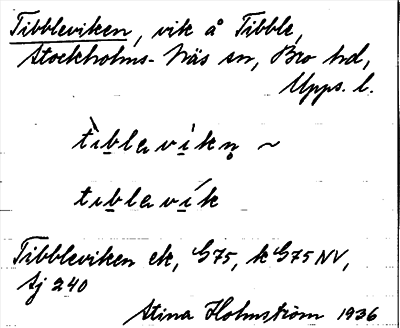 Tibbleviken, vik å Tibble,
Stockholms-Näs sn, Bro hd,
Upps. l.
tìblavíkn̥ ~
tiblavík
Tibbleviken ek, G75, k G75 NV,
Aj 240
Stina Holmström 1936